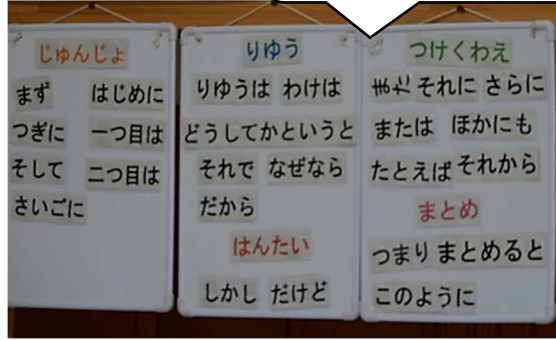 じゅんじょ
まず はじめに
つぎに 一つ目は
そして 二つ目は
さいごに
りゆう
りゆうは わけは
どうしてかというと
それで なぜなら
だから
はんたい
しかし だけど
つけくわえ
また それに さらに
または ほかにも
たとえば それから
まとめ
つまり まとめると
このように